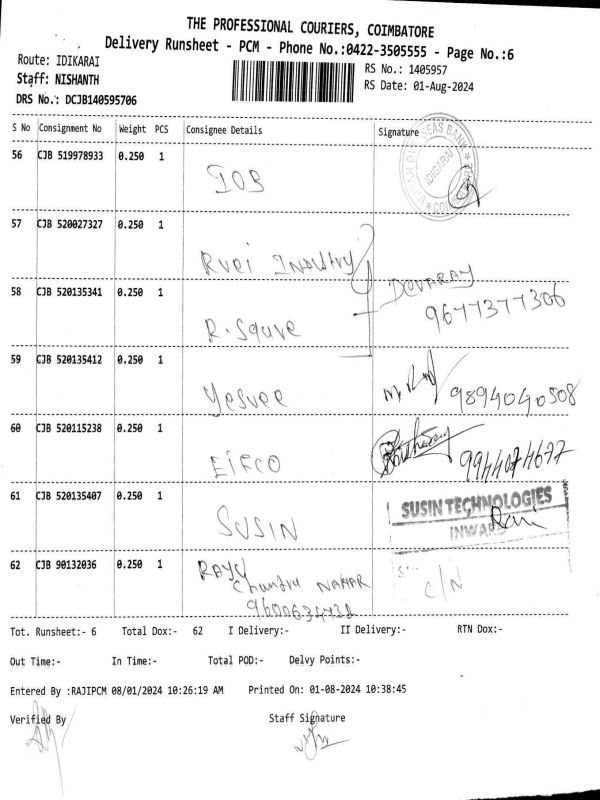 THE PROFESSIONAL COURIERS, COIMBATORE
Delivery Runsheet - PCM - Phone No.:0422-3505555 - Page No.:6
Route: IDIKARAI
RS No.: 1405957
Staff: NISHANTH
RS Date: 01-Aug-2024
DRS No.: DCJB140595706
S No Consignment No Weight PCS Consignee Details Signature
56 CJB 519978933 0.250 1 IOB
IDIGARAI
57 CJB 520027327 0.250 1 Rvei Industry
DEVARAJ
58 CJB 520135341 0.250 1 R. Squve
9677377306
59 CJB 520135412 0.250 1 Yesvee 9894040508
60 CJB 520115238 0.250 1 EIFCO 9944074677
61 CJB 520135407 0.250 1 SUSIN
SUSIN TECHNOLOGIES
INWARD
62 CJB 90132036 0.250 1 RAYU
Chandra NAGAR C/N
9600634731
Tot. Runsheet:- 6 Total Dox:- 62 I Delivery:- II Delivery:- RTN Dox:-
Out Time:- In Time:- Total POD:- Delvy Points:-
Entered By :RAJIPCM 08/01/2024 10:26:19 AM Printed On: 01-08-2024 10:38:45
Verified By Staff Signature